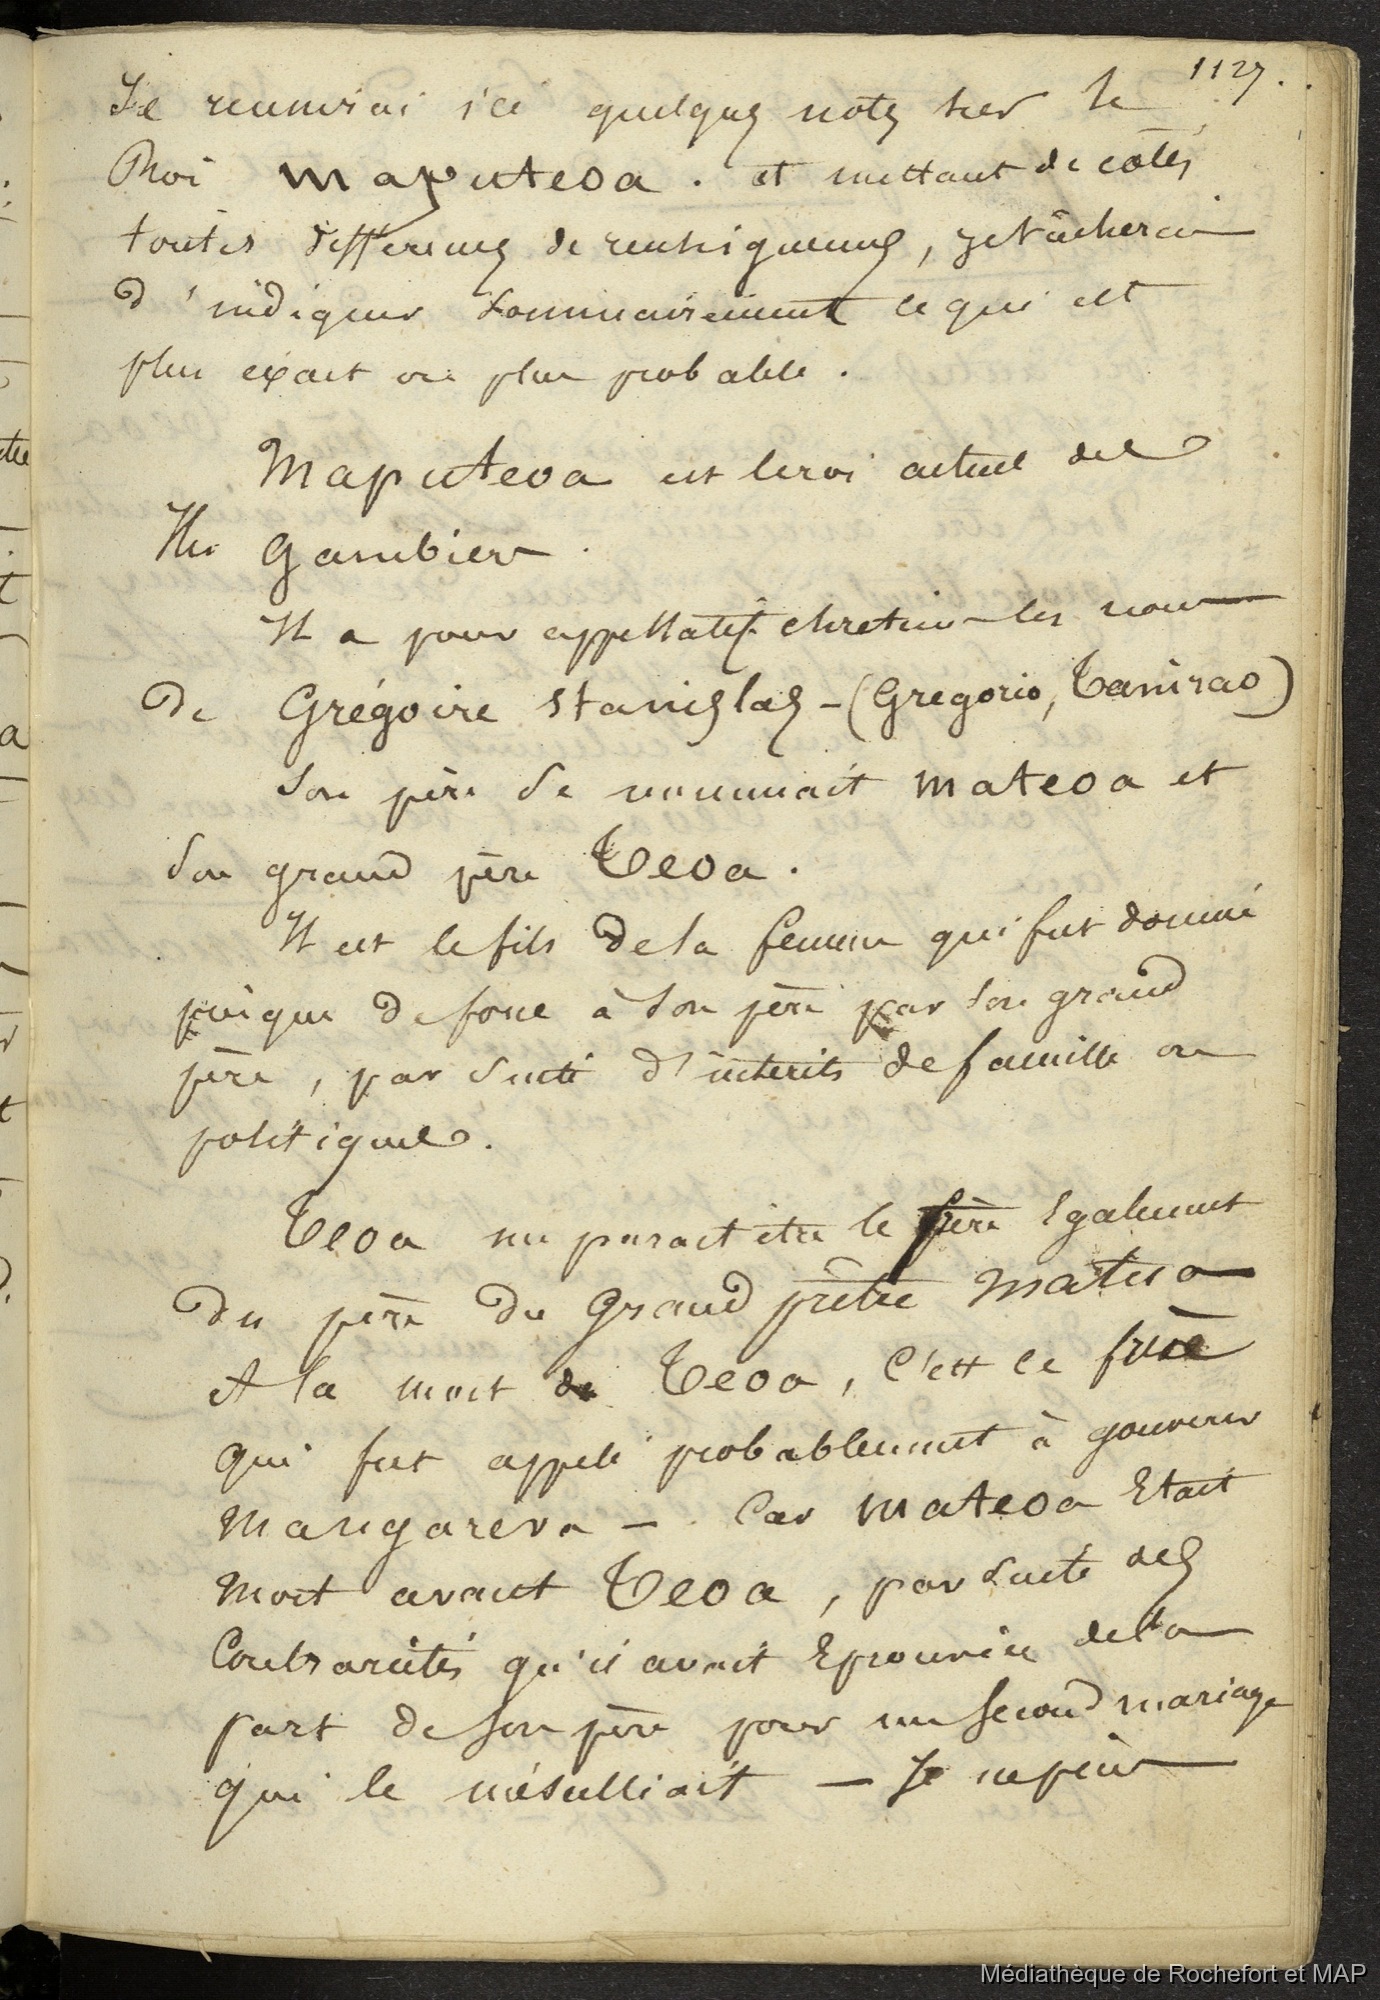 1127.
Je reunirai ici quelques notes sur le
Roi Maputeoa. et mettant de cotés
toutes differences de renseignemens, je tâcherai
d'indiquer sommairement ce qui est
plus exact ou plus probable.
Maputeoa est le roi actuel des
Iles Gambier.
Il a pour appellatif chretien les noms
De Grégoire Stanislas - (Gregorio, Tanirao)
Son père se nommait Mateoa et
Son grand père Teoa.
Il est le fils de la femme qui fut donné
puique de force à son père par son grand
père, par suite d'interets de famille ou
politiques.
Teoa me parait etre le frère également
du père du Grand prêtre Matua
A la mort de Teoa, c'est ce frère
qui fut appelé probablement à gouverner
Mangareva - . Car Mateoa Etait
Mort avant Teoa, par suite des
Contrariétés qu'il avait Eprouvées de la
part de son père pour un second mariage
qui le mésalliait - Je ne puis
Médiathèque de Rochefort et MAP